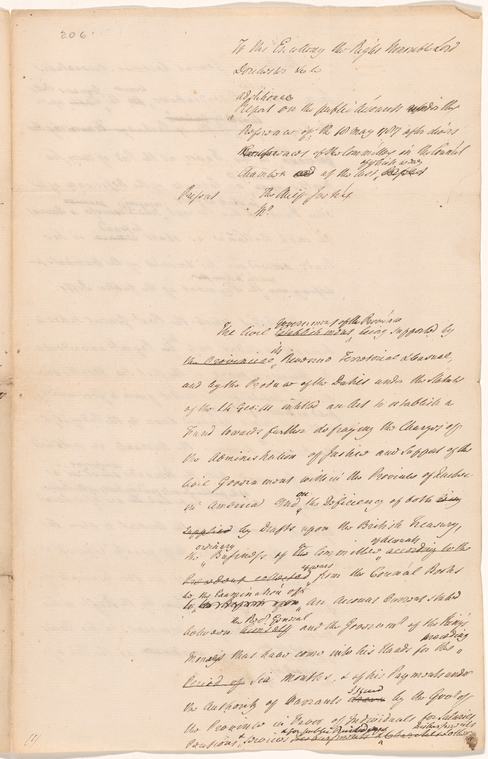 206
To His Excellency the Right Honorable Lord
Dorchester &c &c
additional
Report on the public Accounts under the
Reference of the 10 May 1787 after divers
Conferences of the Committee in the Council
Chamber and of the last,
Present The Chief Justice
Government of the Province
The Civil Establishment, being supported by
the Provincial its Revenue Territorial & Casual,
and by the Produce of the Duties under the Statute
of the 14 Geo: III intitled an Act to establish a
Fund towards further defraying the Charges of
the Administration of Justice and Support of the
Civil Government within the Province of Quebec
in America And on the Deficiency of both being
supplied by Drafts upon the British Treasury,
ordinary
the Business of the Committee, according to the
from the Council Books
to the Examination of
to an Account Current stated
the Rec.r General
between and the Governm.t of the King's
preceding
Moneys that have come into his Hands for the
Period of Six Months, & of his Payments under
the Authority of Warrants issued by the Gov.r of
the Province in Favor of Individuals for Salaries
Pensions, Services
(1)